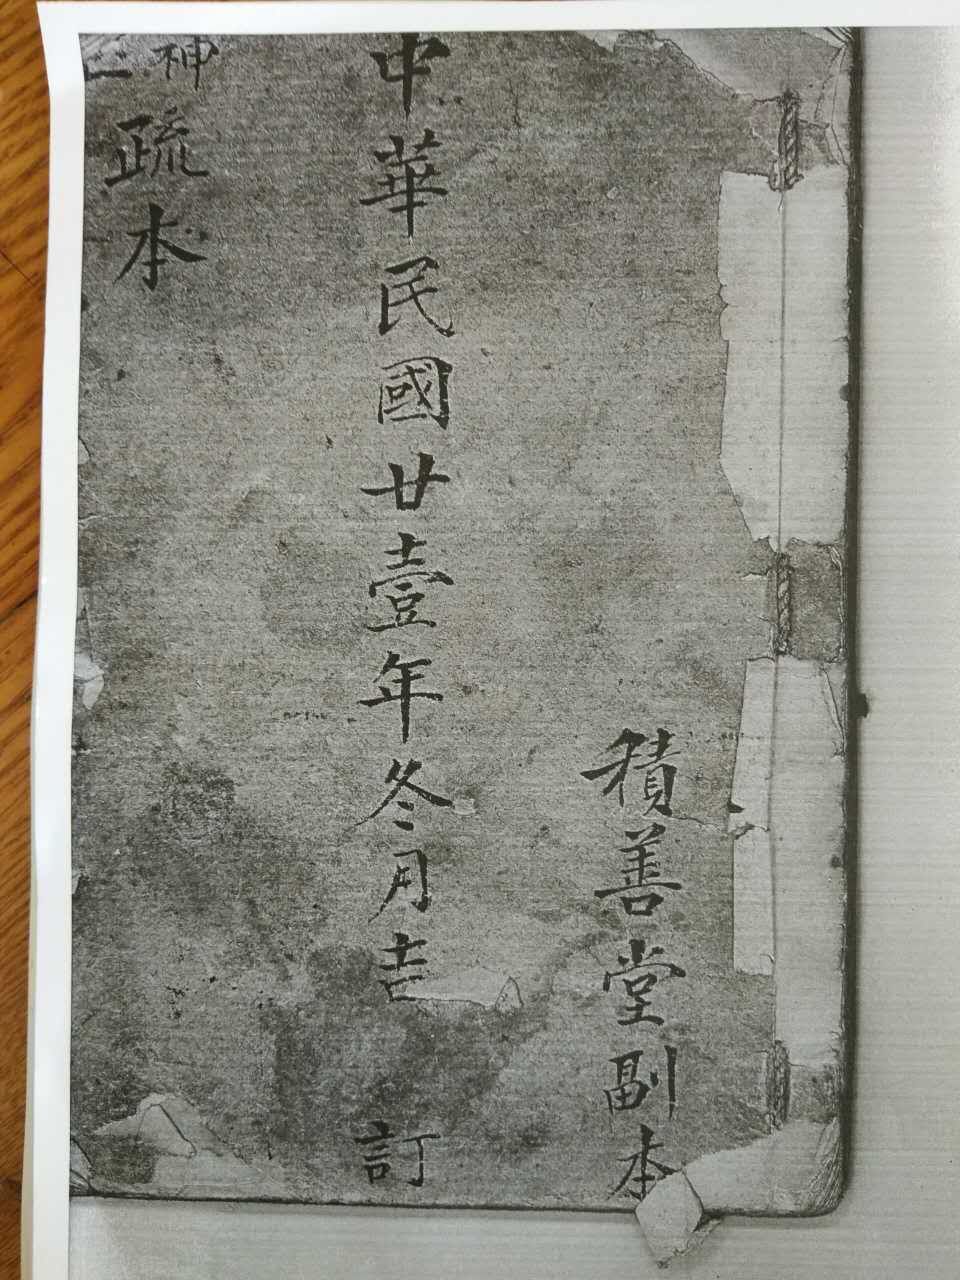 積善堂副本
中華民國廿壹年冬月吉 訂
神
疏本